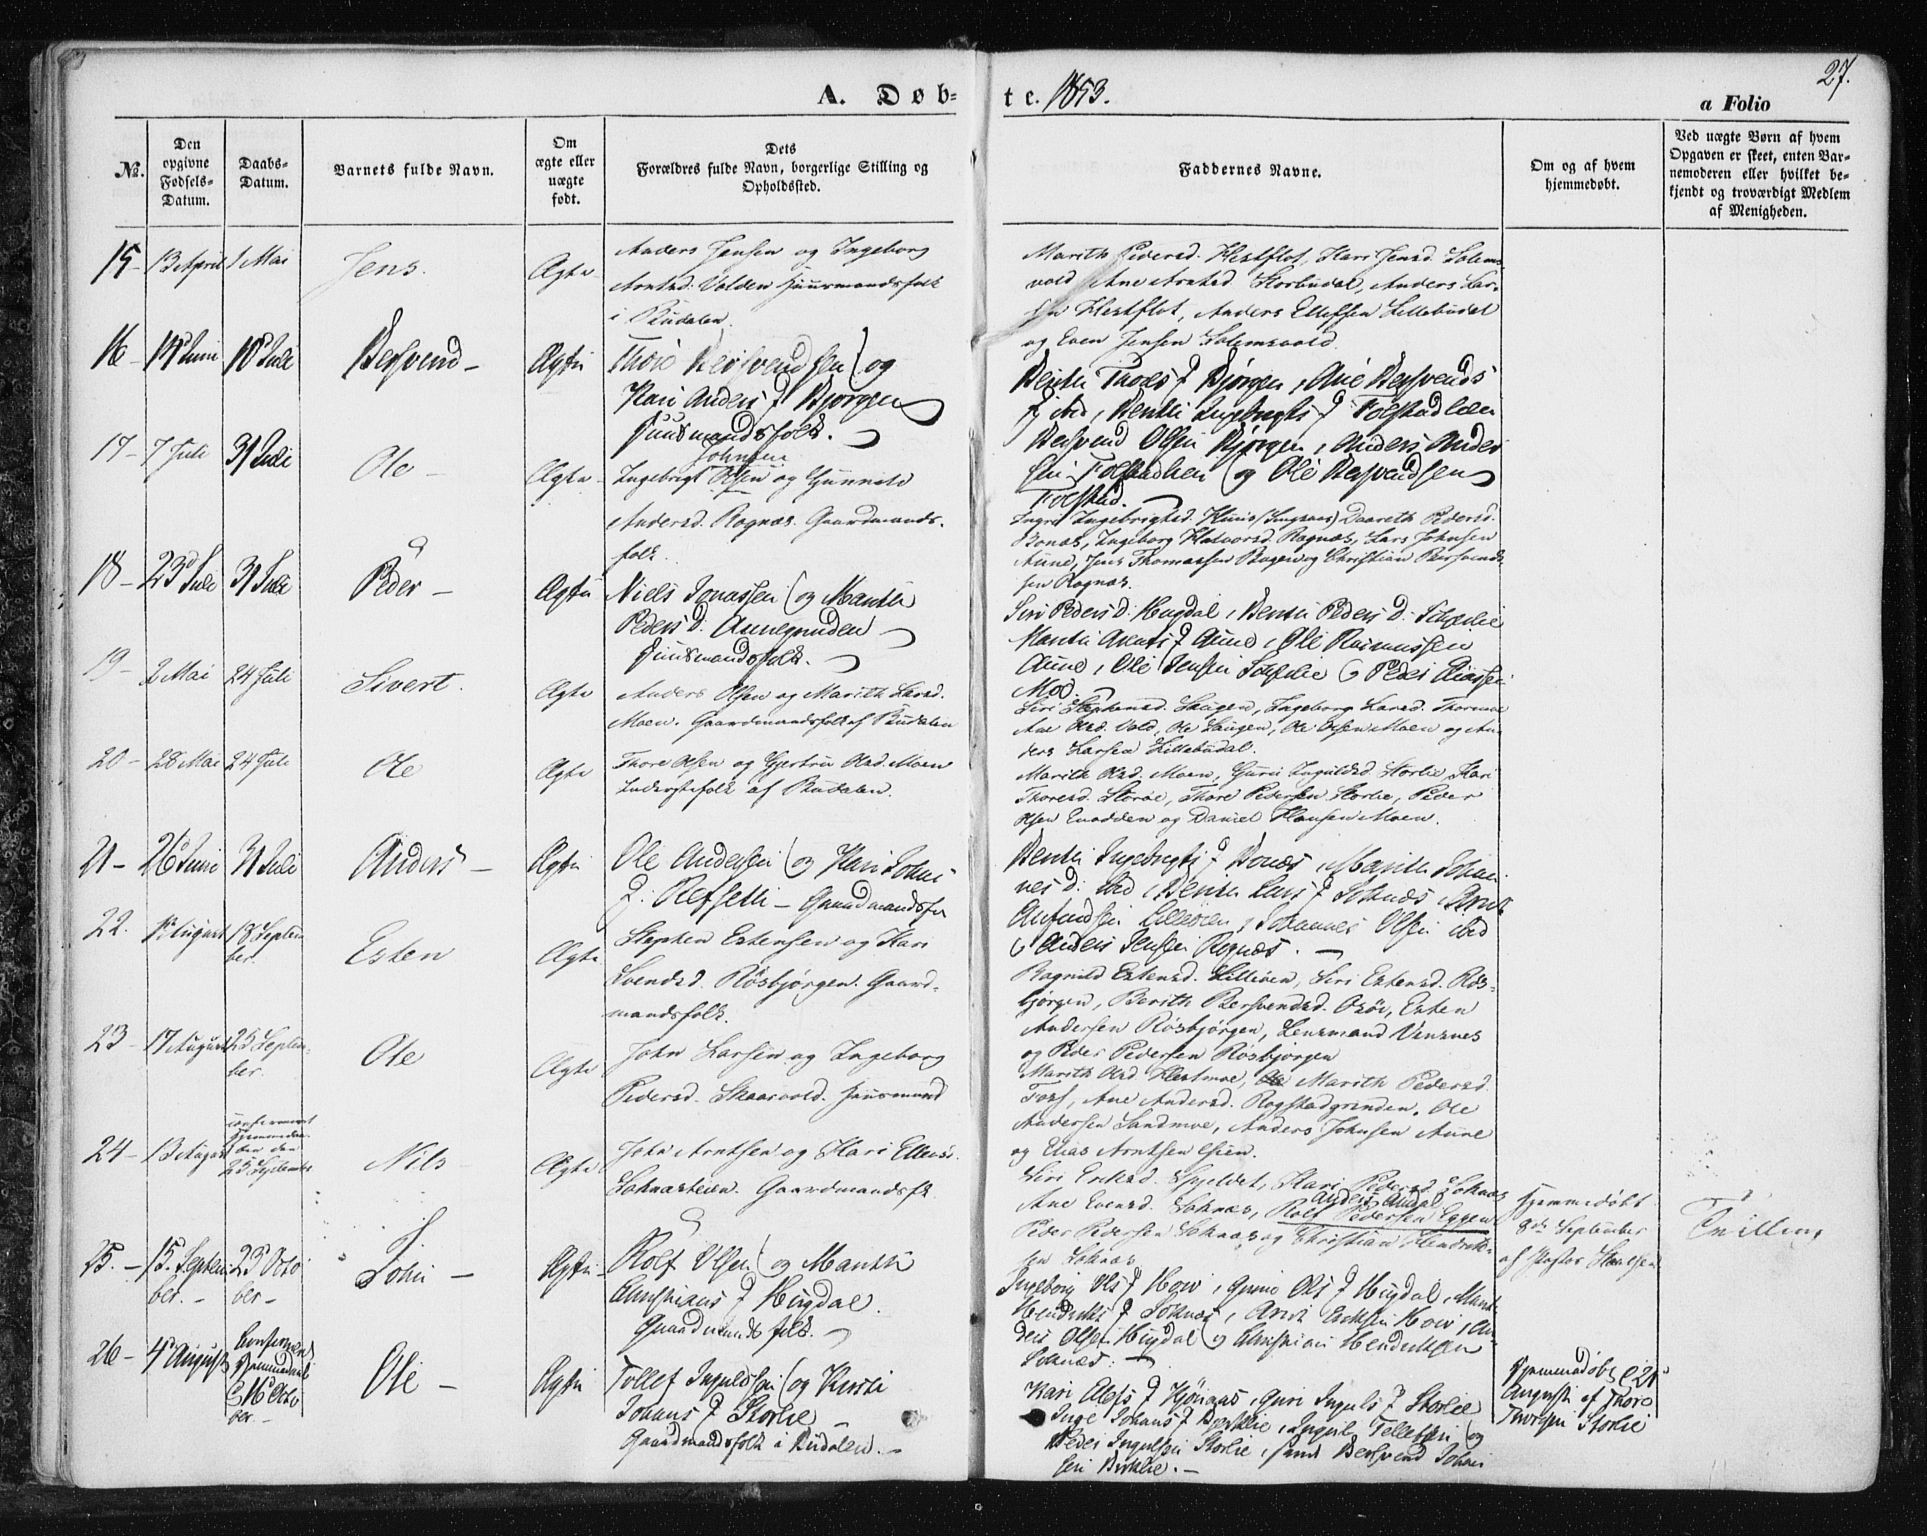 A. Døb=
te. 1853.
27.
a Folio
№.
Den opgivne Fødsels-Datum.
Daabs-Datum.
Barnets fulde Navn.
Om ægte eller uægte født.
Dets Forældres fulde Navn, borgerlige Stilling og Opholdssted.
Faddernes Navne.
Om og af hvem hjemmedøbt.
Ved uægte Børn af hvem Opgaven er skeet, enten Barnemoderen eller hvilket bekjendt og troværdigt Medlem af Menigheden.
15 - 13 April 1 Mai Jens. Ægte
Anders Jensen og Ingeborg
Arntsd. Volden Huusmandsfolk
i Budalen.
Marith Pedersd. Hestflot, Kari Jensd. Solems-
vold Ane Arntsd. Storbudal, Anders Lar-
sen Hestflot, Anders Ellefsen Lillebudal
og Even Jensen Solemsvold.
16 - Juni 10 Juli Bersvend - Ægte
Thore Bersvendsen og
Kari Anders D Bjørgen
Huusmandsfolk.
Berith Thores D Bjørgen, Ane Bersvends
D ibid, Berith Ingebrigts D Folstadlien
Bersvend Olsen Bjørgen, Anders Ander
sen Folstadlien og Ole Bersvendsen
Folstad.
17 - 7 Juli 31 Juli Ole - Ægte
Johnsen
Ingebrigt Olsen og Gunnild
Andersd. Rognæs. Gaardmands-
folk.
Ingri Ingebrigtsd. Huus (Singsaas) Daareth Pedersd.
Bonæs, Ingeborg Halvorsd. Rognæs, Lars Johnsen
Aune, Jens Thomassen Bogen og Christian Bersvend-
sen Rognæs.
18 - 23 Juli 31 Juli Peder - Ægte
Niels Jonassen og Marith
Peders D. Aunegrinden
Huusmandsfolk.
Siri Peders D. Hugdal, Berith Peders D.
Marith D Aune, Ole Rasmussen
Aune, Ole Jensen og Peder Eliassen
Moe.
19 - 2 Mai 24 Juli Sivert. Ægte
Anders Olsen og Marith Larsd.
Moen. Gaardmandsfolk af Budalen
Siri Stephensd. Haugen, Ingeborg Larsd.
Ane Olsd. Vold, Ole Haugen, Ole Olsen Moen og An-
ders Larsen Lillebudal.
20 - 28 Mai 24 Juli Ole Ægte
Thore Olsen og Gjertru Olsd. Moen
Inderstefolk af Budalen.
Marith Olsd. Moen, Guri Ingulsd. Storlie, Kari
Thoresd. Storøe, Thore Pedersen Storlie, Peder
Olsen Enodden og Daniel Hansen Moen.
21 - 26 Juni 31 Juli Anders - Ægte
Ole Andersen og Kari Johns
D. Refsetli - Gaardmandsfo
Berith Ingebrigts D Bonæs, Marith Johan-
nes D. ibid, Berith Lars D Soknæs, Arnt
Anfindsen Lilleøien, Johannes Olsen ibid
& Anders Jensen Rognæs. -
22. August 18 Septem-
ber. Esten Ægte
Stephen Estensen og Kari
Svendsd. Røsbjørgen. Gaard-
mandsfolk.
Ragnild Estensd. Lilleøien, Siri Estensd. Røs-
bjørgen, Berith Bersvendsd. Osøi, Esten
Andersen Røsbjørgen, Lensmand Vensnes
og Peder Pedersen Røsbjørgen
23 - 17 August 25 Septem-
ber. Ole Ægte
John Larsen og Ingeborg
Pedersd. Skaarvold. Huusmand
Marith Olsd Hestmoe, Marith Pedersd.
Foss, Ane Andersd. Rogstadgrinden. Ole
Andersen Sandmoe, Anders Johnsen Aune
og Elias Arntsen Øien.
24 - 13 August
confirmeret
Hjemmedaa-
ben den
25 September
Nils Ægte
John Arntsen og Kari Ellefs-
Soknæsteien. Gaardmandsfk
Siri Eriksd. Gjeldet, Kari Pedersd. Soknæs
Ane Evensd. Soknæs, Rolf Pedersen Eggen
Anders Andal
Peder Pedersen Soknæs og Christian Hendrik-
sen Soknæs
Hjemmedøbt
8de September
af Pastor
Tvilling
25. - 15. Septem
ber. - 23 Octo
ber - John - Ægte
Rolf Olsen og Marith
Christians D Hugdal.
Gaardmandsfolk.
Ingeborg Ols D How, Guru Ols D Hugdal, Marit
Hendriks D Soknæs, Arnt Eriksen How, An-
ders Olsen Hugdal og Christian Hendriksen
Soknæs. -
26 - 4 August
Confirmeret
Hjemmedaab
16 Octo
ber. -
Ole - Ægte
Tollef Ingulssen og Kirsti
Johans D Storlie -
Gaardmandsfolk i Budalen. -
Kari Elefs D, Guri Inguls D Storlie
Inge Johans D, Ingul Tollefsen og
Peder Ingulsen Storlie, samt Bersvend Johan
sen -
Hjemmedøbt d 21
August af Thore
Thoresen Storlie